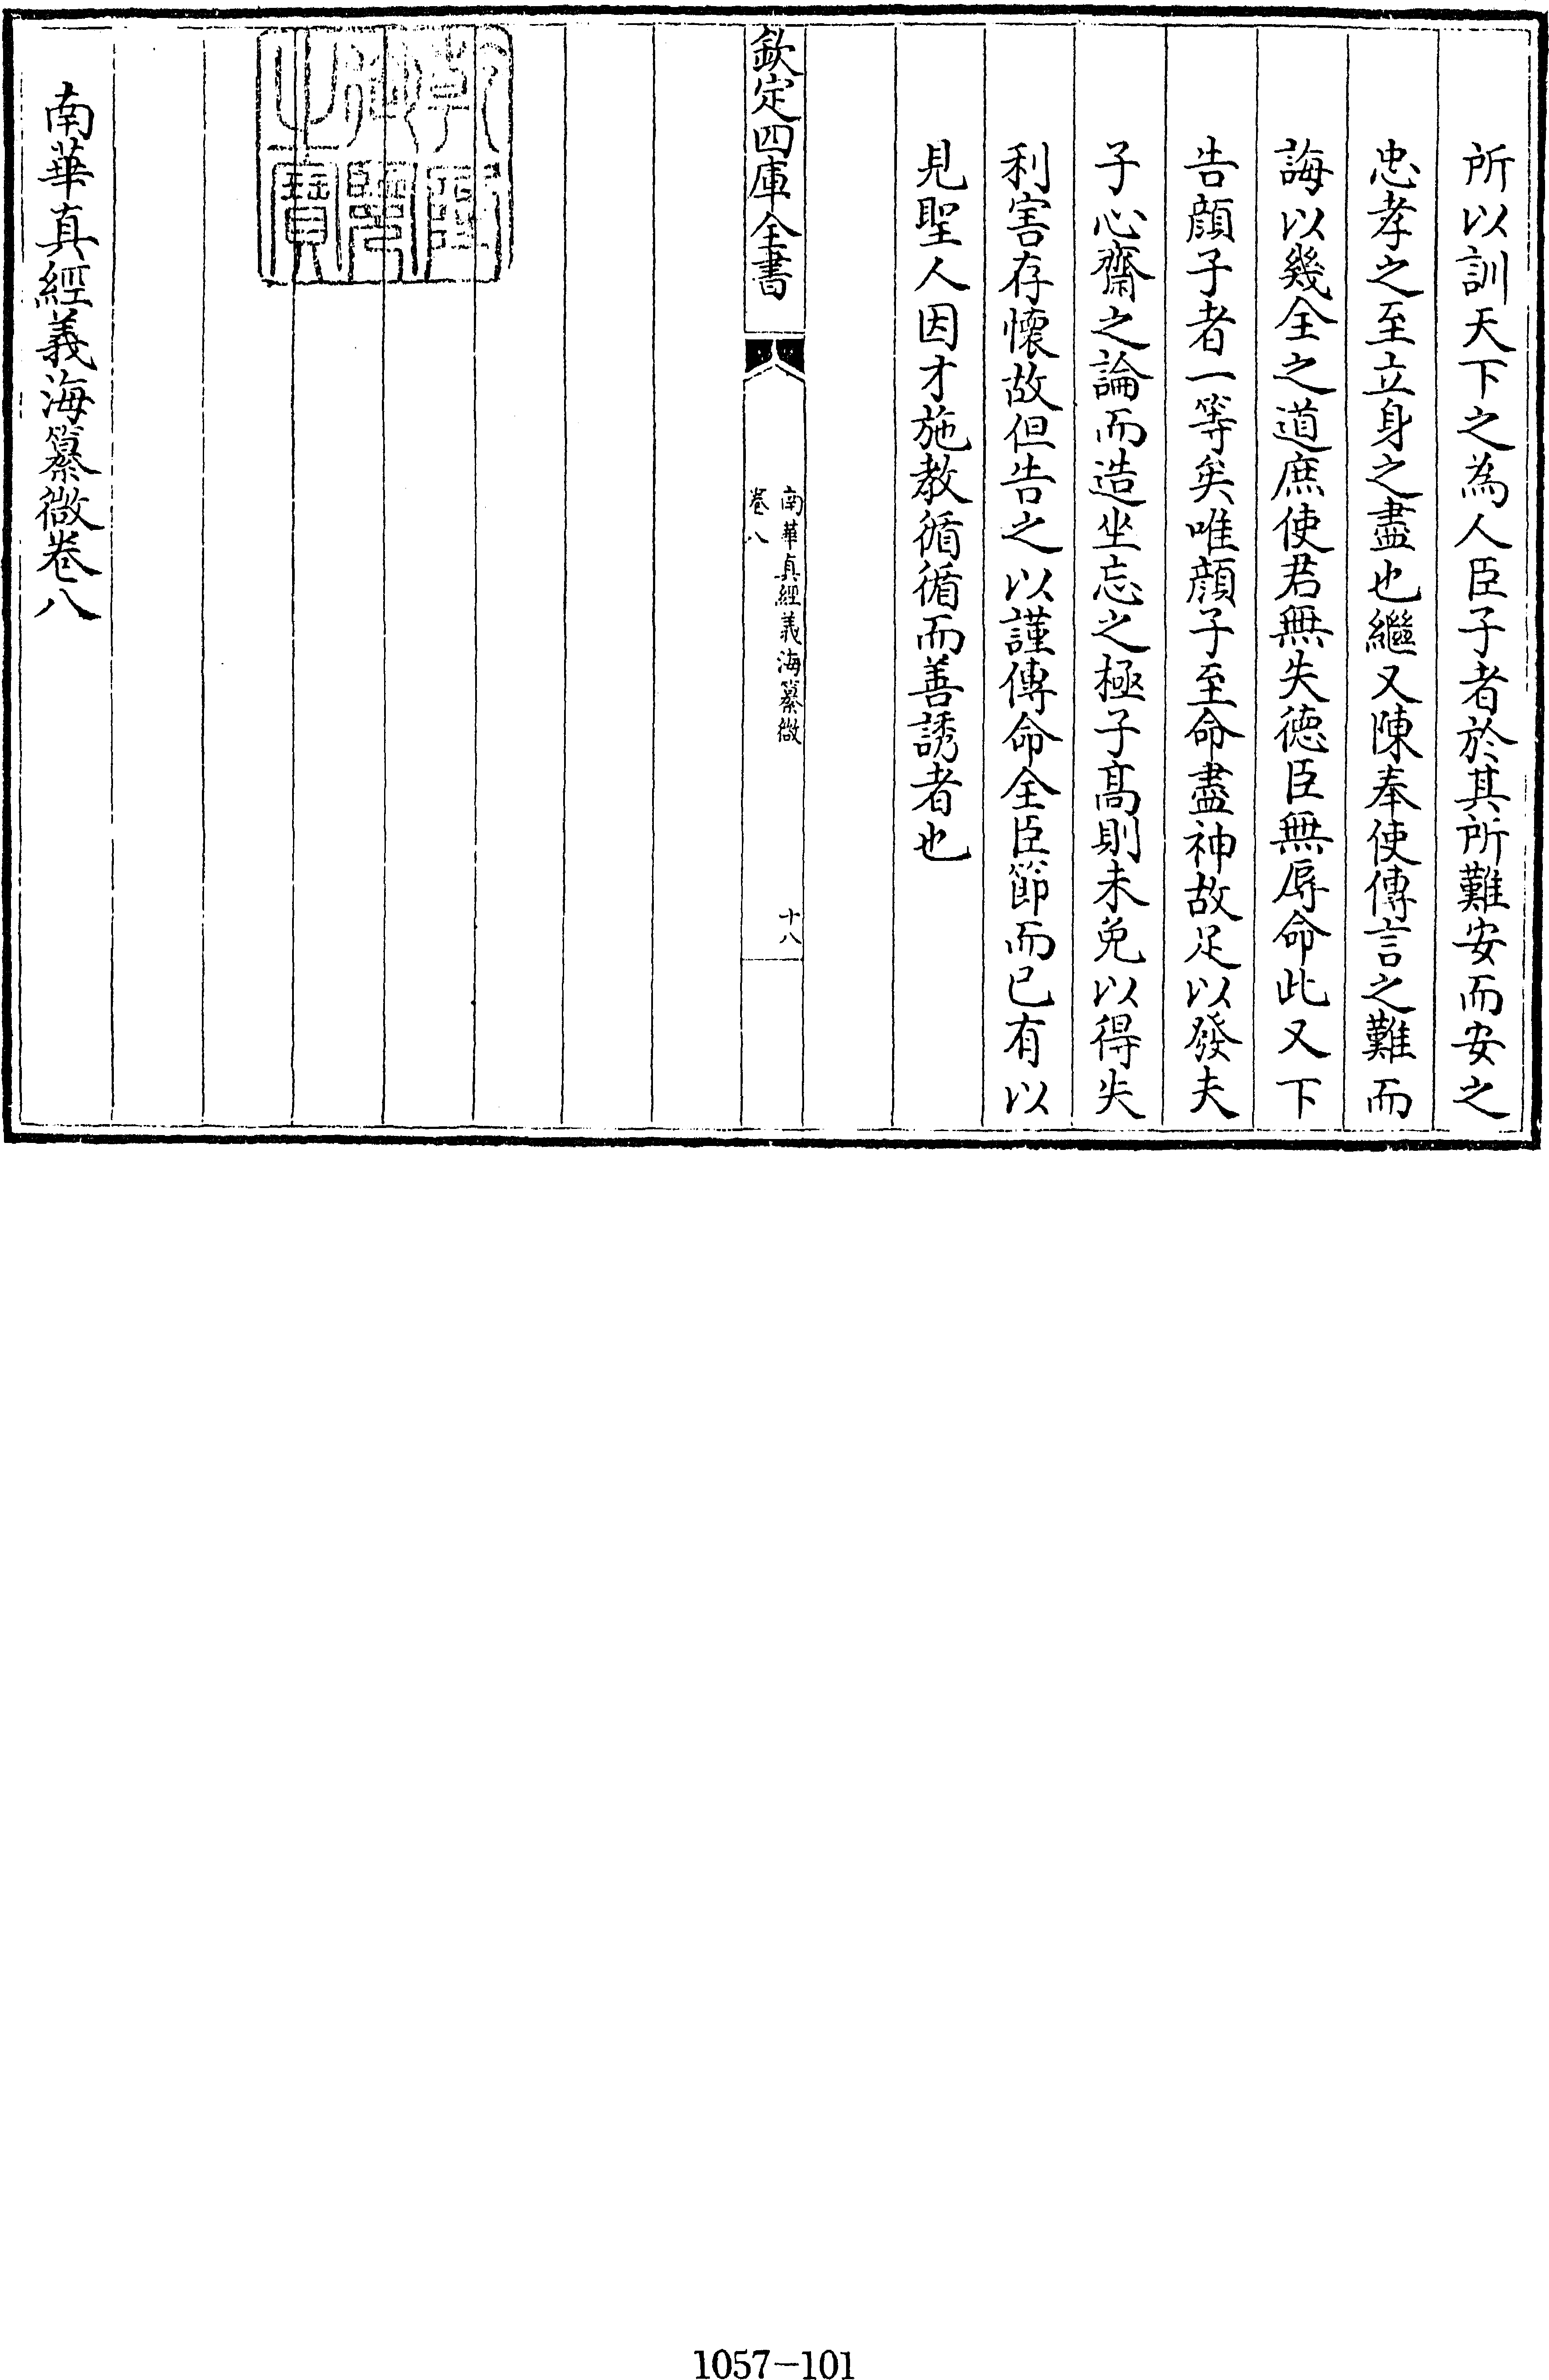 所以訓天下之為人臣子者於其所難安而安之
忠孝之至立身之盡也繼又陳奉使傳言之難而
誨以幾全之道庶使君無失徳臣無辱命此又下
告顔子者一等矣唯顔子至命盡神故足以發夫
子心齋之論而造坐忘之極子髙則未免以得失
利害存懐故但告之以謹傳命全臣節而已有以
見聖人因才施教循循而善誘者也
欽定四庫全書
南華真經義海纂微
卷八
十八
乾隆御覽之寶
南華真經義海纂微卷八
1057-101